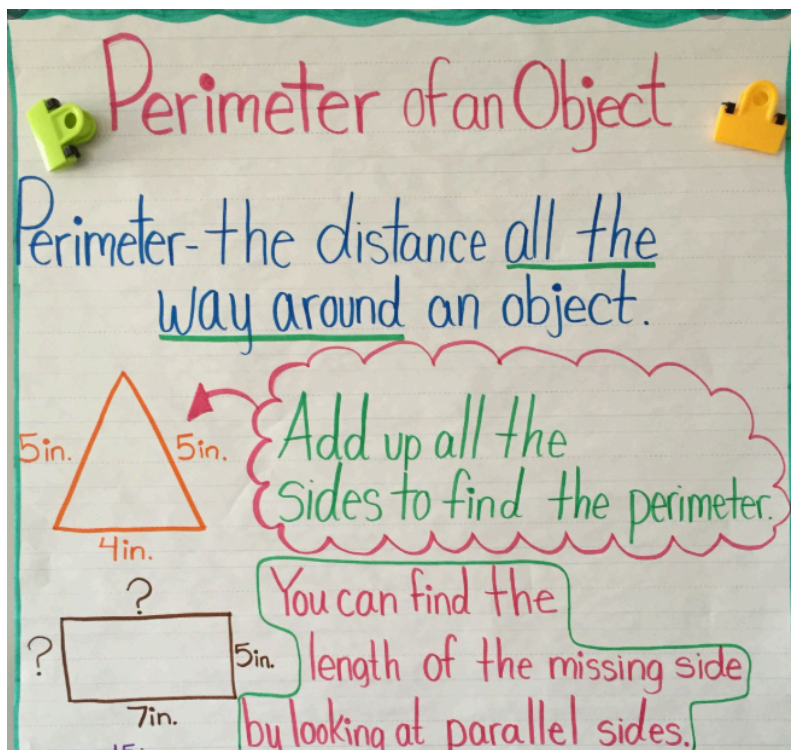 Perimeter of an Object
Perimeter - the distance all the
way around an object.
5in.
5in.
4in.
Add up all the
sides to find the perimeter.
?
?
5in.
7in.
You can find the
length of the missing side
by looking at parallel sides.